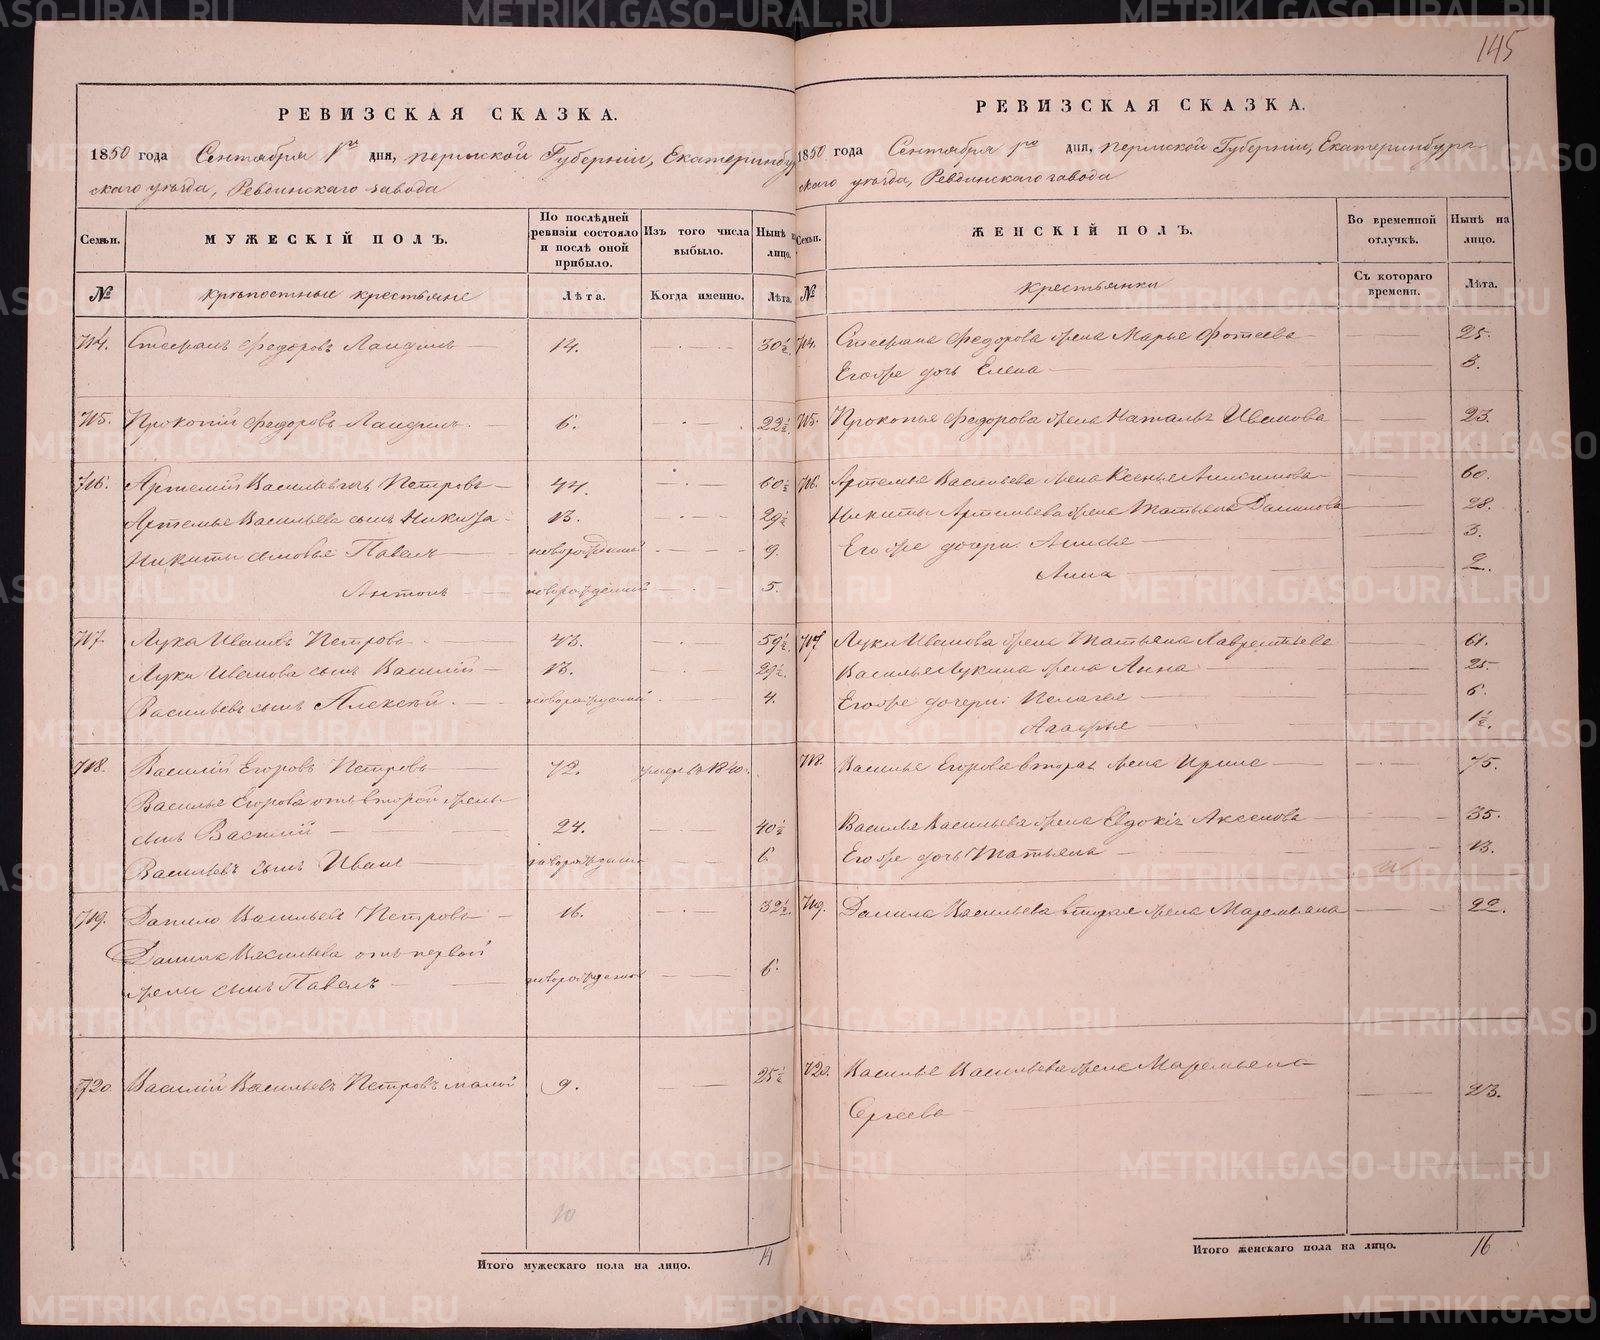 145
РЕВИЗСКАЯ СКАЗКА.
1850 года Сентября 1го дня, Пермской Губерніи, Екатеринбу
скаго уѣзда, Ревдинскаго завода
Семьи.
МУЖЕСКІЙ ПОЛЪ.
По послѣдней ревизіи состояло и послѣ оной прибыло.
Изъ того числа выбыло.
Нынѣ на лицо.
№
крѣпостные крестьяне
Лѣта.
Когда именно.
Лѣта.
714. Стефанъ Федоровъ 14. 30½
715. Прокопій Федоровъ 6. 22½
716. Артемій Васильевичъ Петровъ 44. 60½
Артемья Васильева сынъ Никита 13. 29½
Никиты сыновья Павелъ новорожденный 9.
Антонъ новорожденный 5.
717. Лука Ивановъ Петровъ 43. 59½
Луки Иванова сынъ Василій 13. 29½
Васильевъ сынъ Алексѣй новорожденный 4.
718. Василій Егоровъ Петровъ 72. умеръ въ 1840.
Василья Егорова отъ второй жены
сынъ Василій 24. 40½
Васильевъ сынъ Иванъ новорожден 6
719. Данило Васильевъ Петровъ 16. 32½
Данила Васильева отъ первой
жены сынъ Павелъ новорожден 6.
720 Василій Васильевъ Петровъ малой 9. 25½
10
Итого мужескаго пола на лицо. 14
РЕВИЗСКАЯ СКАЗКА.
1850 года Сентября 1го дня, Пермской Губерніи, Екатеринбург-
скаго уѣзда, Ревдинскаго завода
Семьи.
ЖЕНСКІЙ ПОЛЪ.
Во временной отлучкѣ.
Нынѣ на лицо.
№
крестьянки
Съ котораго времени.
Лѣта.
714. Стефана Федорова жена Марья Фотеева 25.
Его же дочь Елена 3.
715. Прокопья Федорова жена Наталья Иванова 23.
716. Артемья Васильева жена Ксенья 60.
Никиты Артемьева жена Татьяна Данилова 28.
Его же дочери: Анисья 3.
Анна 2.
717 Луки Иванова жена Татьяна Лаврентьева 61.
Василья Лукина жена Анна 25.
Его же дочери: Пелагея 6.
Агафья 1½.
718. Василья Егорова вторая жена Ирина 75.
Василья Васильева жена Евдокія Аксенова 35.
Его же дочь Татьяна 13.
719. Данила Васильева вторая жена Маремьяна 22.
720. Василья Васильева жена Маремьяна
Сергеева 23.
Итого женскаго пола на лицо. 16
METRIKI.GASO-URAL.RU